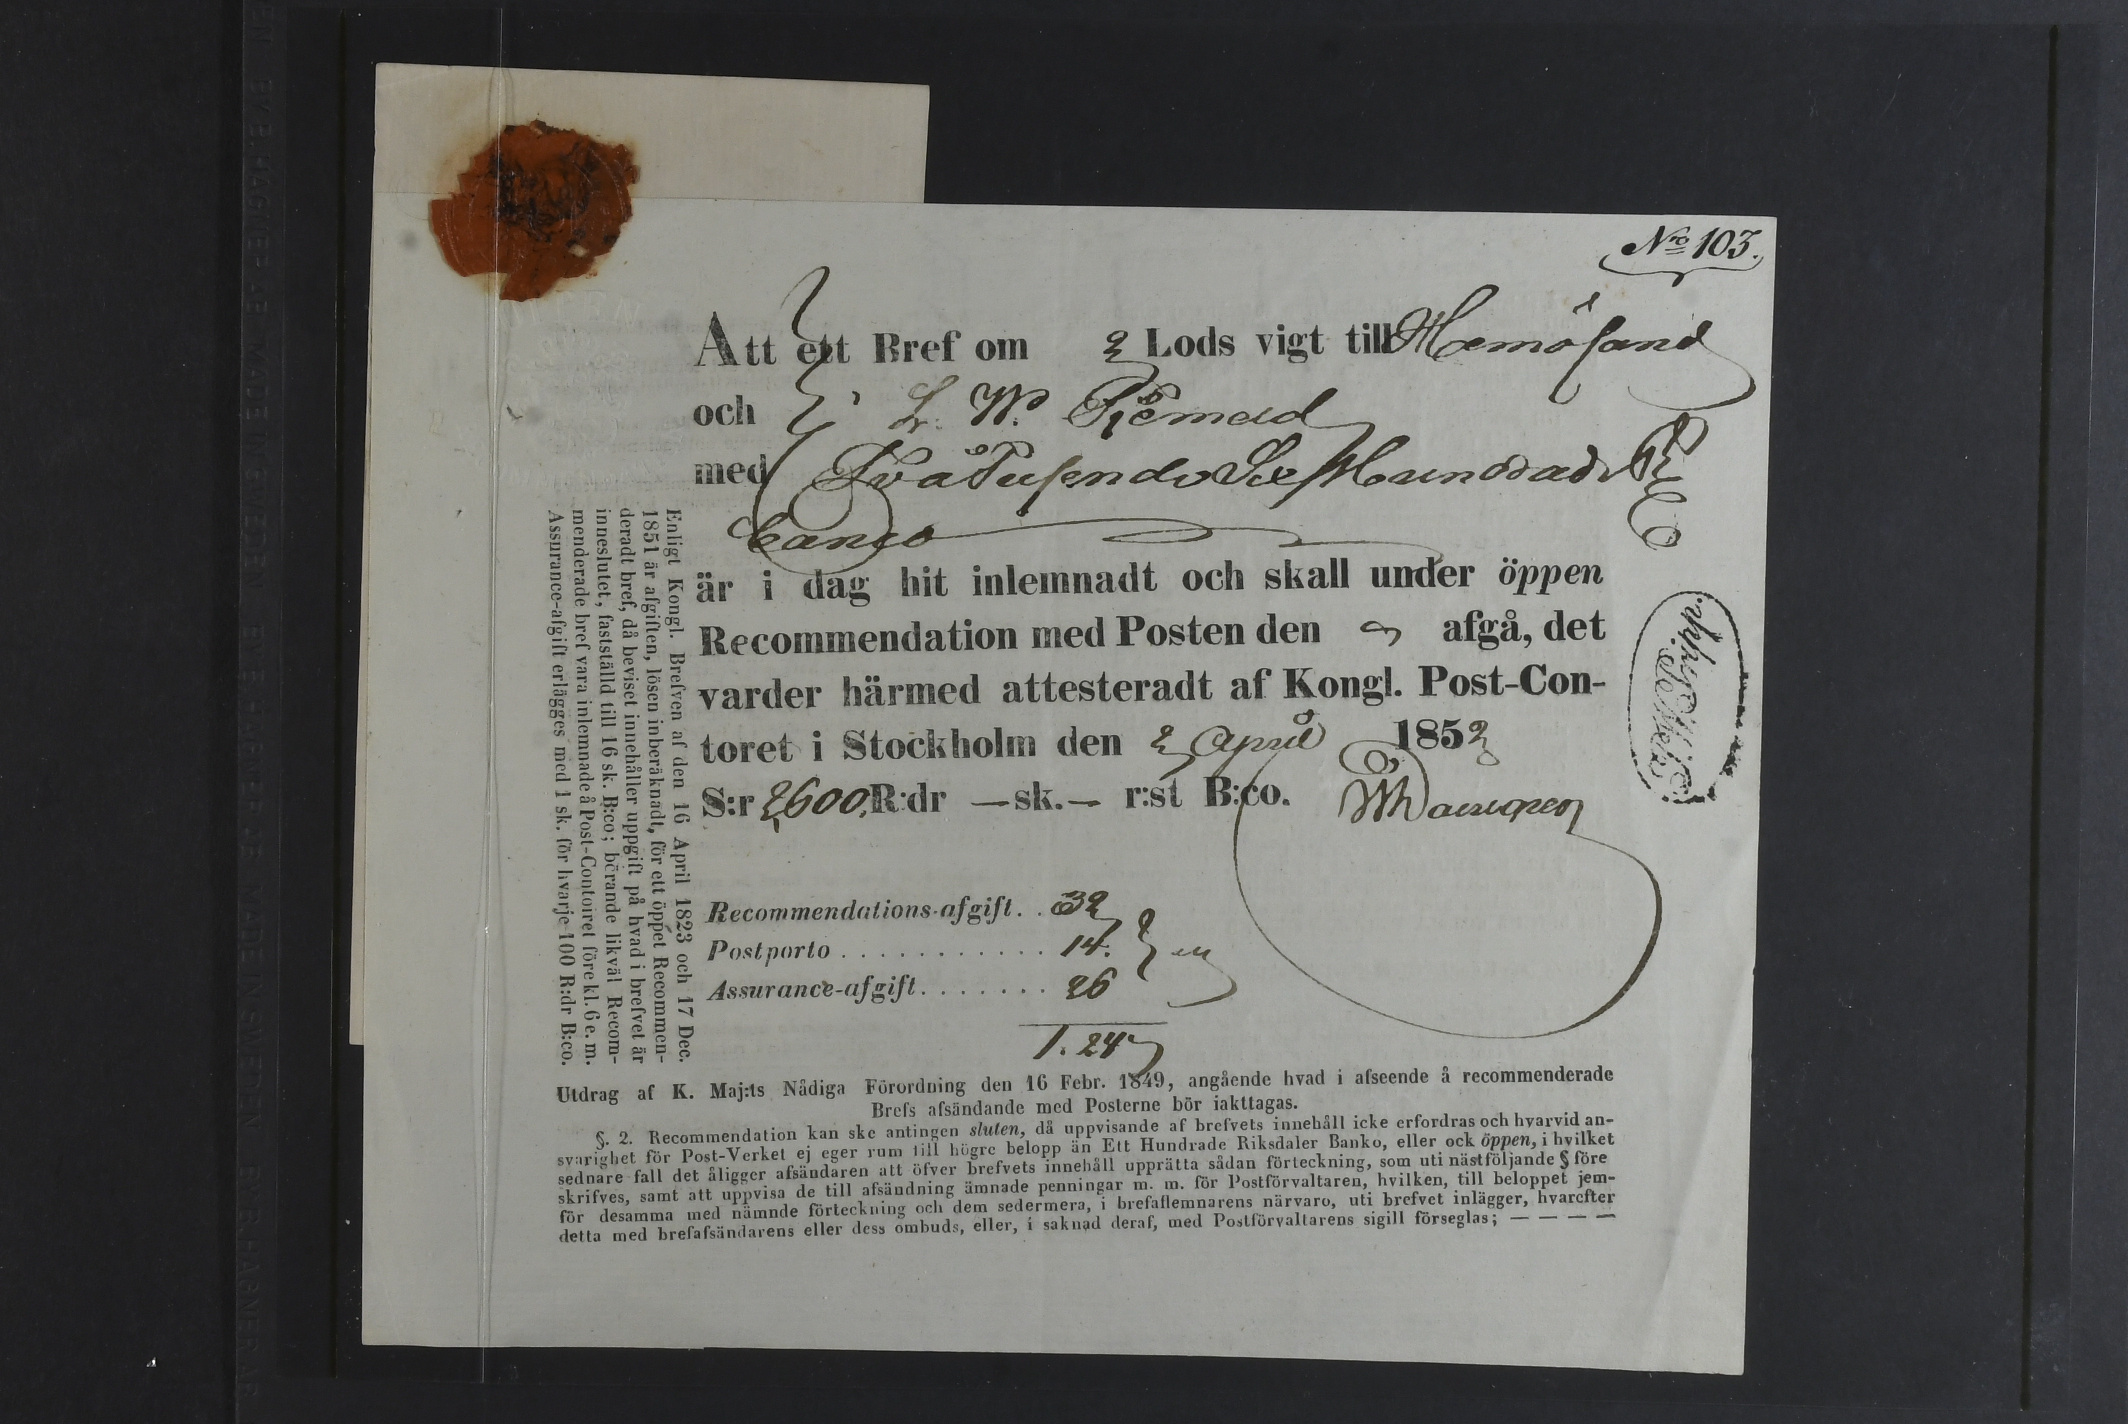 Nro 103.
Att ett Bref om 2 Lods vigt till Hernösand
och L. W.
med Två Tusende Sex Hundrade R
banco
är i dag hit inlemnadt och skall under öppen
Recommendation med Posten den afgå, det
varder härmed attesteradt af Kongl. Post-Con-
toret i Stockholm den 2 April 1852
S:r 2600 R:dr — sk. — r:st B:co.
Recommendations-afgift. . 32
Postporto . . . . . . . . . . . . 14.
Assurance-afgift. . . . . . . 26
1. 24
Enligt Kongl. Brefven af den 16 April 1823 och 17 Dec.
1851 är afgiften, lösen inberäknadt, för ett öppet Recommen-
deradt bref, då beviset innehåller uppgift på hvad i brefvet är
inneslutet, fastställd till 16 sk. B:co; börande likväl Recom-
menderade bref vara inlemnade å Post-Contoiret före kl. 6 e. m.
Assurance-afgift erlägges med 1 sk. för hvarje 100 R:dr B:co.
Utdrag af K. Maj:ts Nådiga Förordning den 16 Febr. 1849, angående hvad i afseende å recommenderade
Brefs afsändande med Posterne bör iakttagas.
§. 2. Recommendation kan ske antingen sluten, då uppvisande af brefvets innehåll icke erfordras och hvarvid an-
svarighet för Post-Verket ej eger rum till högre belopp än Ett Hundrade Riksdaler Banko, eller ock öppen, i hvilket
sednare fall det åligger afsändaren att öfver brefvets innehåll upprätta sådan förteckning, som uti nästföljande § före
skrifves, samt att uppvisa de till afsändning ämnade penningar m. m. för Postförvaltaren, hvilken, till beloppet jem-
för desamma med nämnde förteckning och dem sedermera, i brefaflemnarens närvaro, uti brefvet inlägger, hvarefter
detta med brefafsändarens eller dess ombuds, eller, i saknad deraf, med Postförvaltarens sigill förseglas; — — — —